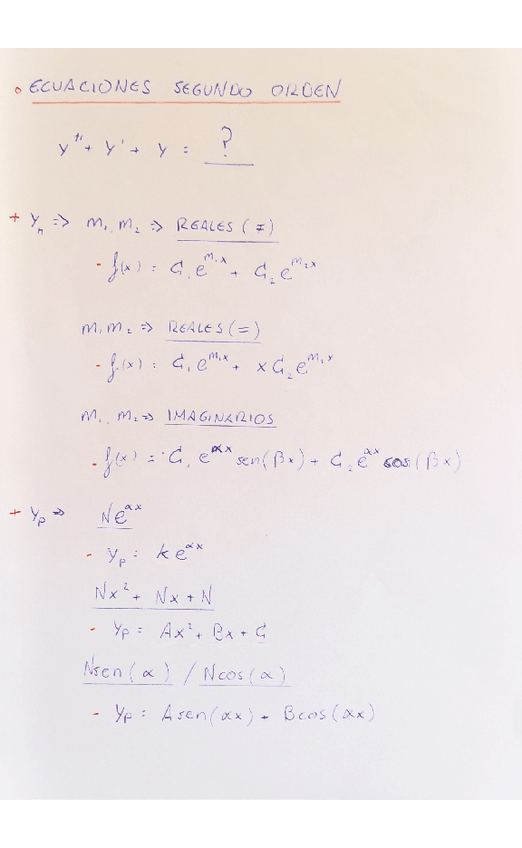 • ECUACIONES SEGUNDO ORDEN
y'' + y' + y = ?
+ yₕ => m₁, m₂ => REALES (≠)
- f(x) = C₁e^(m₁x) + C₂e^(m₂x)
m₁, m₂ => REALES (=)
- f(x) = C₁e^(m₁x) + xC₂e^(m₁x)
m₁, m₂ => IMAGINARIOS
- f(x) = C₁e^(αx) sen(βx) + C₂e^(αx) cos(βx)
+ yₚ => Ne^(αx)
- yₚ = ke^(αx)
Nx² + Nx + N
- yₚ = Ax² + Bx + C
Nsen(α) / Ncos(α)
- yₚ = Asen(αx) + Bcos(αx)